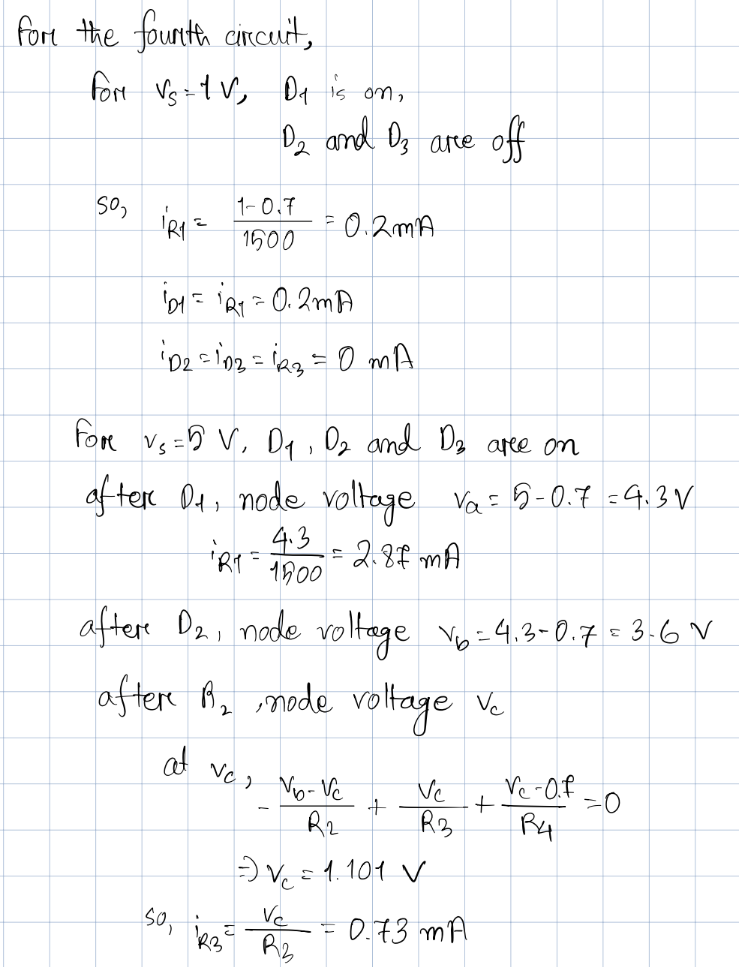 for the fourth circuit,
for vs = 1 V, D1 is on,
D2 and D3 are off
so, iR1 = (1-0.7)/1500 = 0.2mA
iD1 = iR1 = 0.2mA
iD2 = iD3 = iR3 = 0 mA
for vs = 5 V, D1, D2 and D3 are on
after D1, node voltage va = 5-0.7 = 4.3V
iR1 = 4.3/1500 = 2.87 mA
after D2, node voltage vb = 4.3-0.7 = 3.6 V
after R2, node voltage vc
at vc, - (vb-vc)/R2 + vc/R3 + (vc-0.7)/R4 = 0
⇒ vc = 1.101 V
so, iR3 = vc/R3 = 0.73 mA